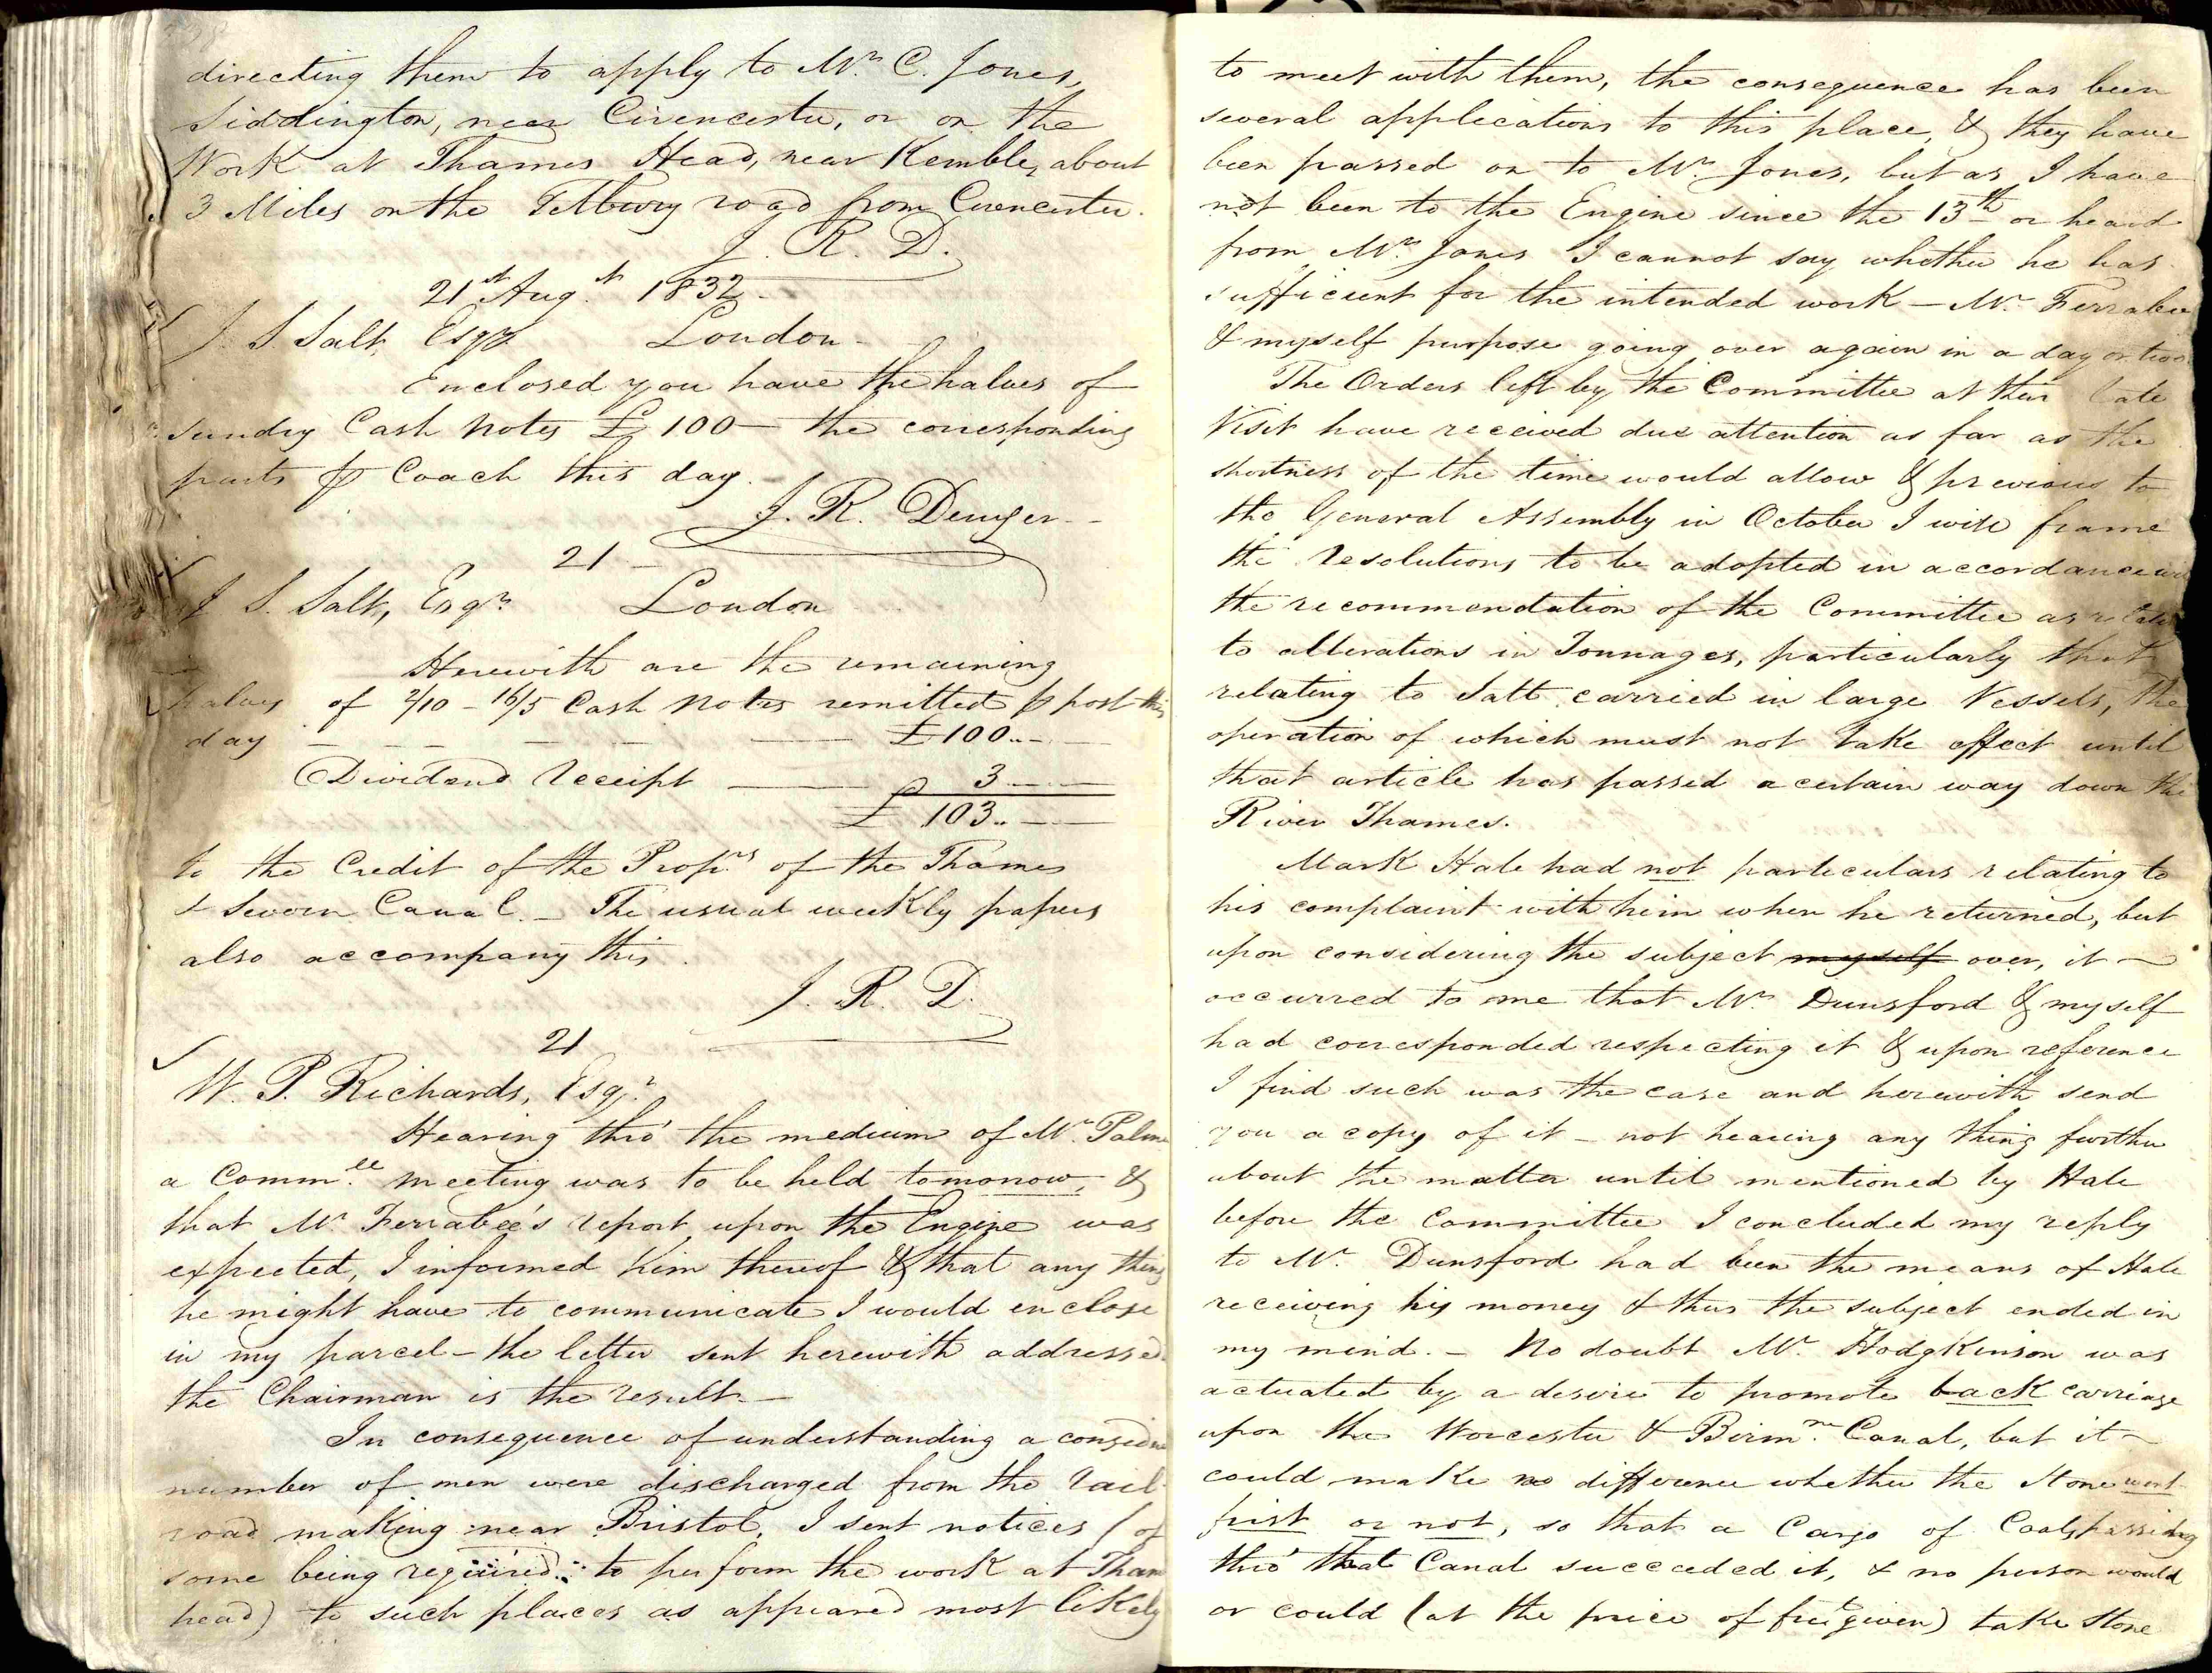 directing them to apply to Mr. C. Jones,
Siddington, near Cirencester, or on the
Work at Thames Head, near Kemble, about
3 Miles on the Tetbury road from Cirencester.
J. R. D.
21st Augst 1832
J. S. Salt, Esqr London
Enclosed you have the halves of
sundry Cash Notes £100— the corresponding
parts ⅌ Coach this day.
J. R. Denyer
21
J. S. Salt, Esqr London
Herewith are the remaining
halves of 2/10 – 16/5 Cash Notes remitted ⅌ post this
day £100..–
Dividend receipt 3
£ 103..–
to the Credit of the Proprs of the Thames
& Severn Canal.– The usual weekly papers
also accompany this.
J. R. D.
21
W. P. Richards, Esqr
Hearing thro' the medium of Mr. Palm
a Commee meeting was to be held tomorrow, &
that Mr. Ferrabee's report upon the Engine was
expected, I informed him thereof & that any thing
he might have to communicate I would enclose
in my parcel – the letter sent herewith addressed
the Chairman is the result.–
In consequence of understanding a consider
number of men were discharged from the rail
road making near Bristol, I sent notices (of
some being required to perform the work at Tham
head) to such places as appeared most likely
to meet with them, the consequence has been
several applications to this place, & they have
been passed on to Mr. Jones, but as I have
not been to the Engine since the 13th or heard
from Mr. Jones I cannot say whether he has
sufficient for the intended work – Mr. Ferrabee
& myself purpose going over again in a day or two
The Orders left by the Committee at their late
Visit have received due attention as far as the
shortness of the time would allow & previous to
the General Assembly in October I will frame
the resolutions to be adopted in accordance
the recommendation of the Committee as relates
to alterations in Tonnages, particularly that
relating to Salt carried in large Vessels, the
operation of which must not take effect until
that article has passed a certain way down the
River Thames.
Mark Hale had not particulars relating to
his complaint with him when he returned, but
upon considering the subject myself over, it
occurred to me that Mr. Dunsford & myself
had corresponded respecting it & upon reference
I find such was the case and herewith send
you a copy of it – not hearing any thing further
about the matter until mentioned by Hale
before the Committee I concluded my reply
to Mr. Dunsford had been the means of Hale
receiving his money & thus the subject ended in
my mind.– No doubt Mr. Hodgkinson was
actuated by a desire to promote back carriage
upon the Worcester & Birmm. Canal, but it
could make no difference whether the Stone went
first or not, so that a Cargo of Coals passing
thro' that Canal succeeded it, & no person would
or could (at the price of freit given) take Stone